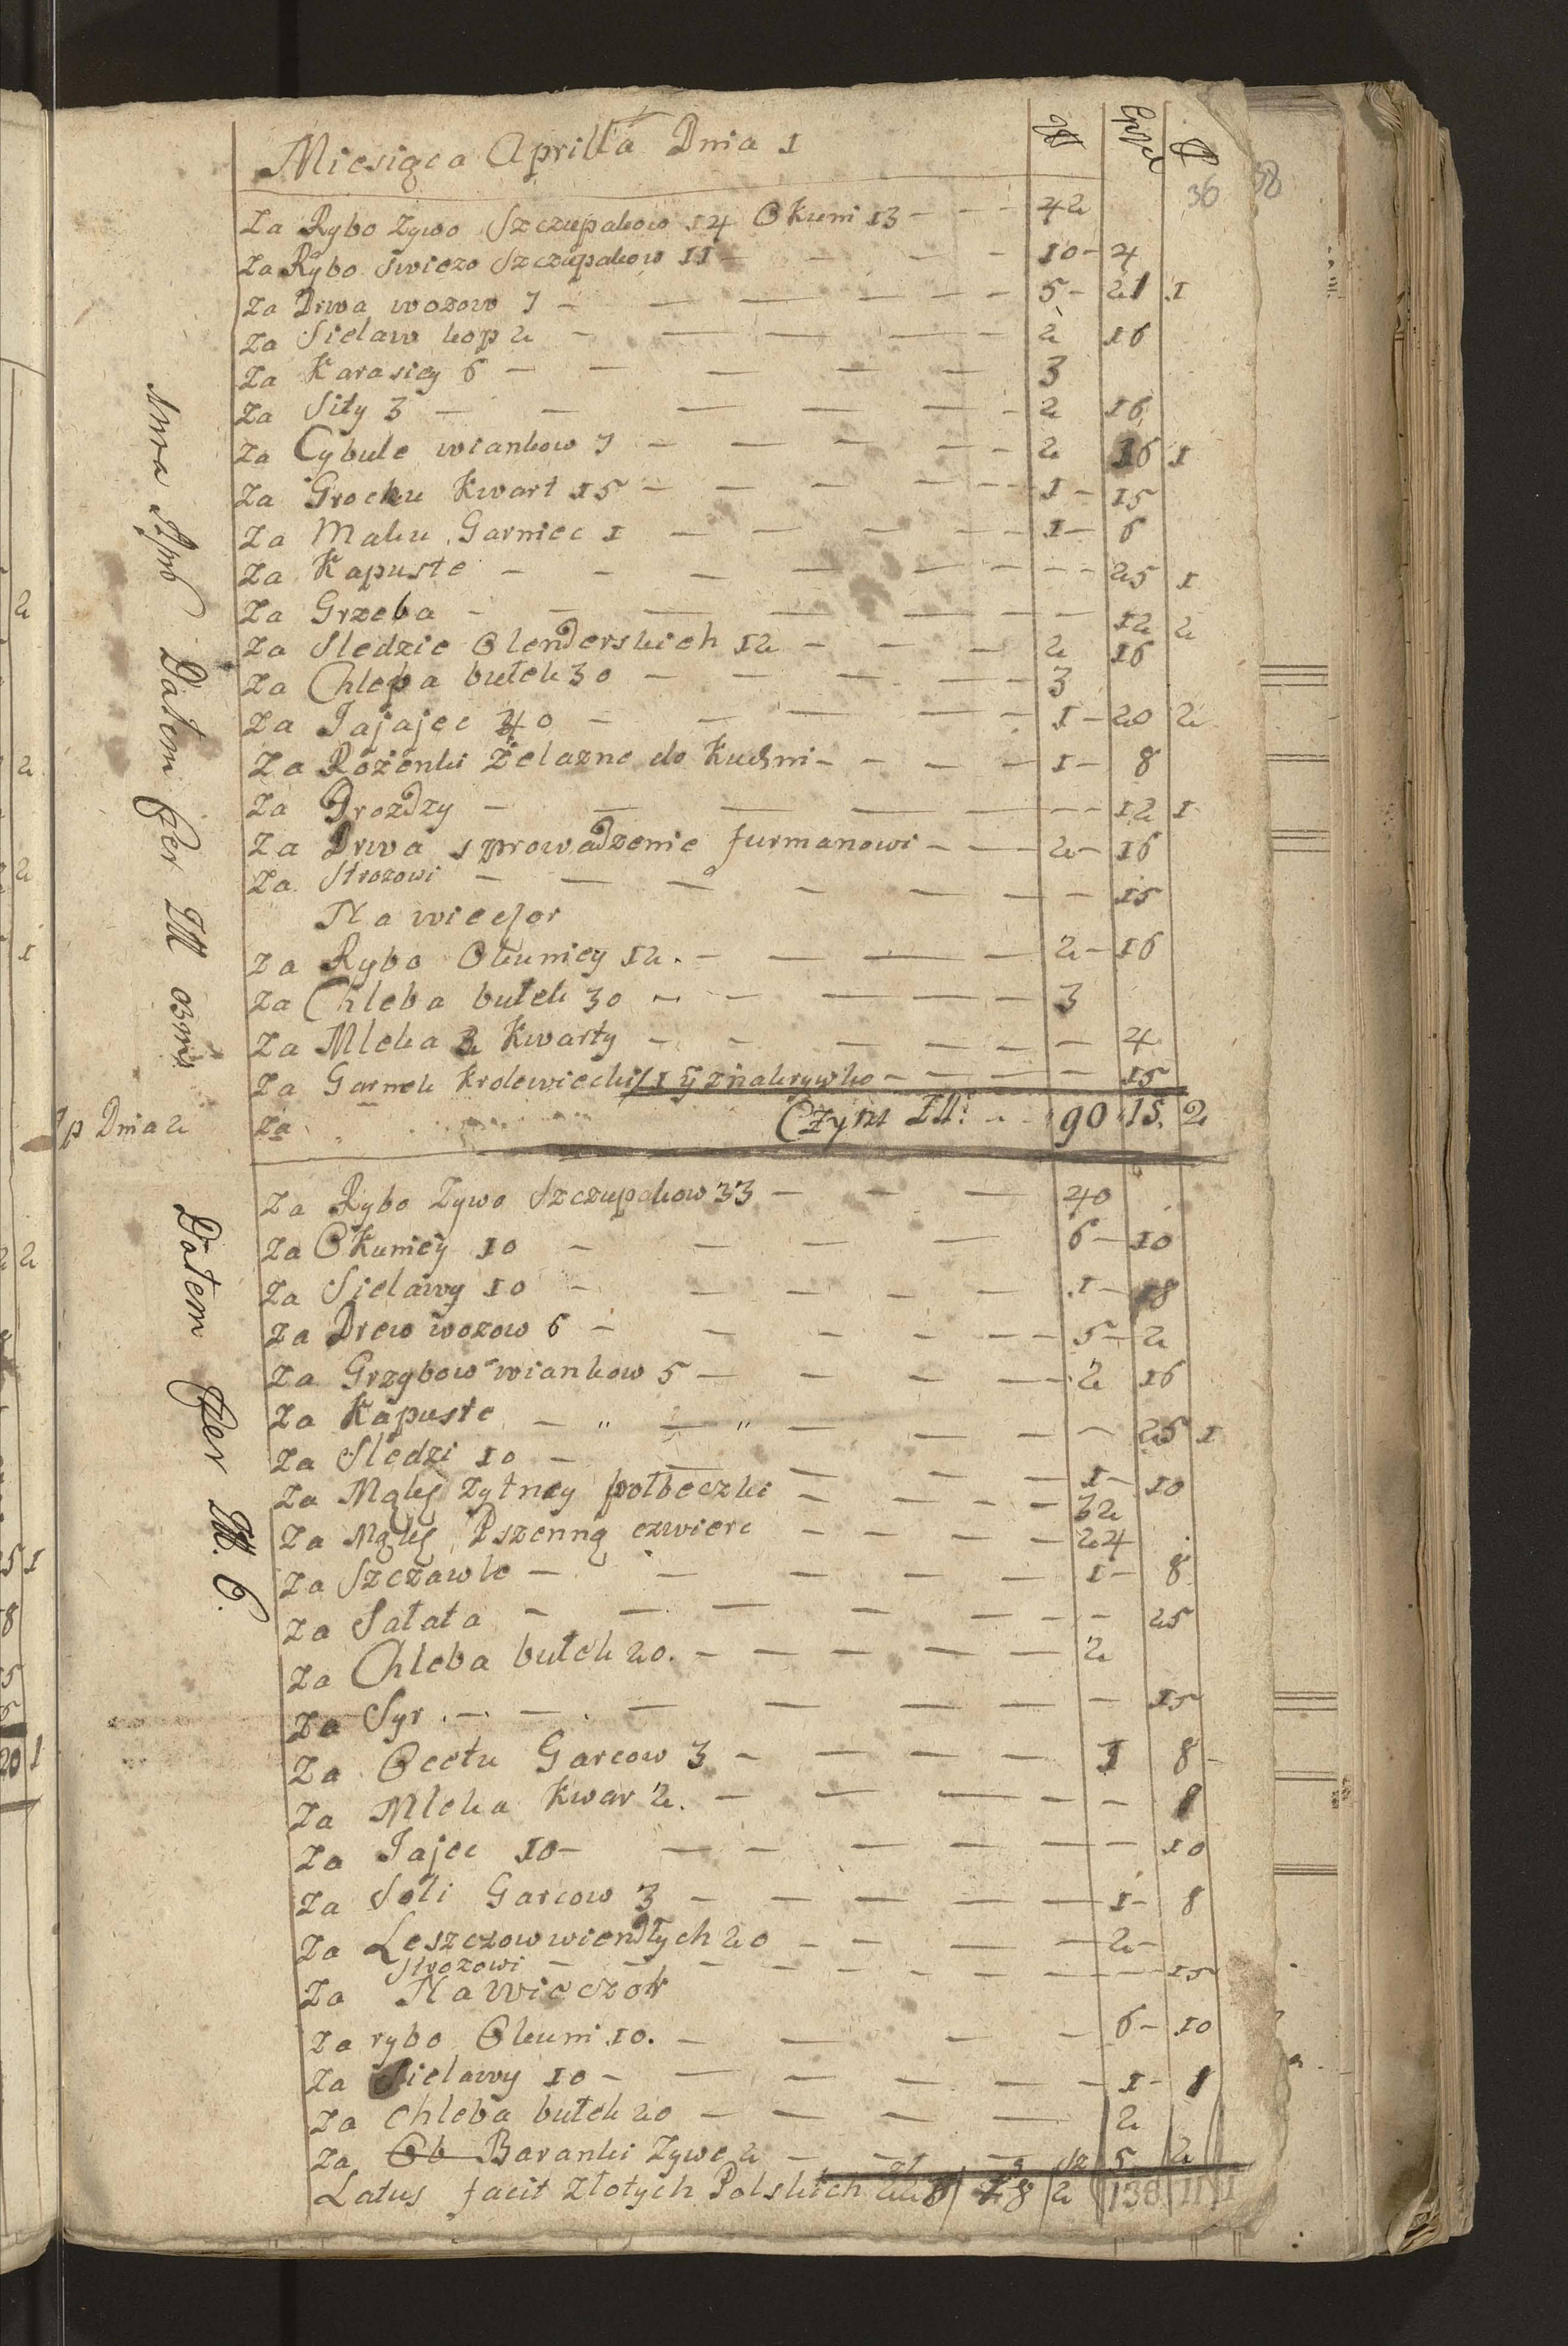 Miesiąca Aprilla Dnia 1
36 38
Za Rybo Zywo Szczupakow 14 Okuni 13 - - - 42
Za Rybo swiezo Szczupakow 11 - - - 10 - 4
Za Drwa wozow 7 - - - 5 - 21 1
Za Sielaw kop 2 - - - 2 16
Za Karasiey 6 - - - 3
Za Sity 3 - - - 2 16
Za Cybule wiankow 7 - - - 2 16 1
Za Grochu Kwart 15 - - - 1 - 15
Za Maku Garniec 1 - - - 1 - 6
Za Kapuste - - - 25 1
Za Grzeba - - - 12 2
Za Sledzie Olenderskich 12 - - - 2 16
Za Chleba bułek 30 - - - 3
Za Jajajec 40 - - - 1 - 20 2
Za Rożenki Żelazne do Kuchni - - - 1 - 8
Za Drozdzy - - - 12 1
Za Drwa sprowadzenie furmanowi - - - 2 - 16
Za Strozowi - - - 15
Na wieczor
Za Rybo Okuniey 12. - - - 2 - 16
Za Chleba bułek 30 - - - 3
Za Mleka 2 Kwarty - - - 4
Za Garnek Krolewiecki 1 znakrywko - - - 15
Za Czyni Zł: - - 90 15. 2
Dnia 2
Za Rybo Zywo Szczupakow 33 - - - 40
Za Okuniey 10 - - - 6 - 10
Za Sielawy 10 - - - 1 - 18
Za Drew wozow 6 - - - 5 - 2
Za Grzybow wiankow 5 - - - 2 16
Za Kapuste - " - " - - - 25 1
Za Sledzi 10 - - - 1 - 10
Za Mąky Zytney połbeczki - - - 32
Za Mąky Pszenną czwierc - - - 24
Za Szczawle - - - 1 - 8
Za Sałata - - - 25
Za Chleba bułek 20. - - - 2
Za Syr - - - 15
Za Occtu Garcow 3 - - - 1 8 -
Za Mleka Kwar 2. - - - 8
Za Jajec 10 - - - 10
Za Soli Garcow 3 - - - 1 - 8
Za Leszczow wiendłych 20 - - - 2 -
Strozowi - - - 15
Za Na Wieczor
Za rybo Okuni 10. - - - 6 - 10
Za Sielawy 10 - - - 1 - 8
Za Chleba bułek 20 - - - 2
Za Ob Baranki Zywe 2 - - - 5 2
Latus facit Złotych Polskich 228 / 28 / 2 138 11 1
Datem
Datem